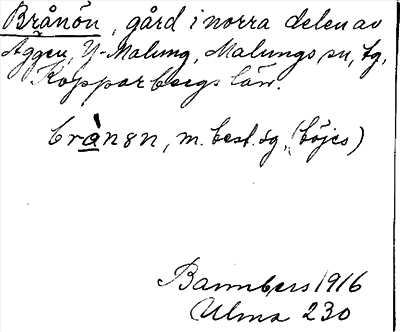 Brånön, gård i norra delen av
Äggen, Y-Malung, Malungs sn, tg,
Kopparbergs län.
brånøn, m. best. sg. (böjes)
Bannbers 1916
Ulma 230